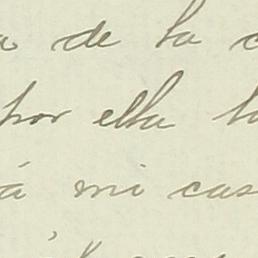 de la
por ella
á mi cas